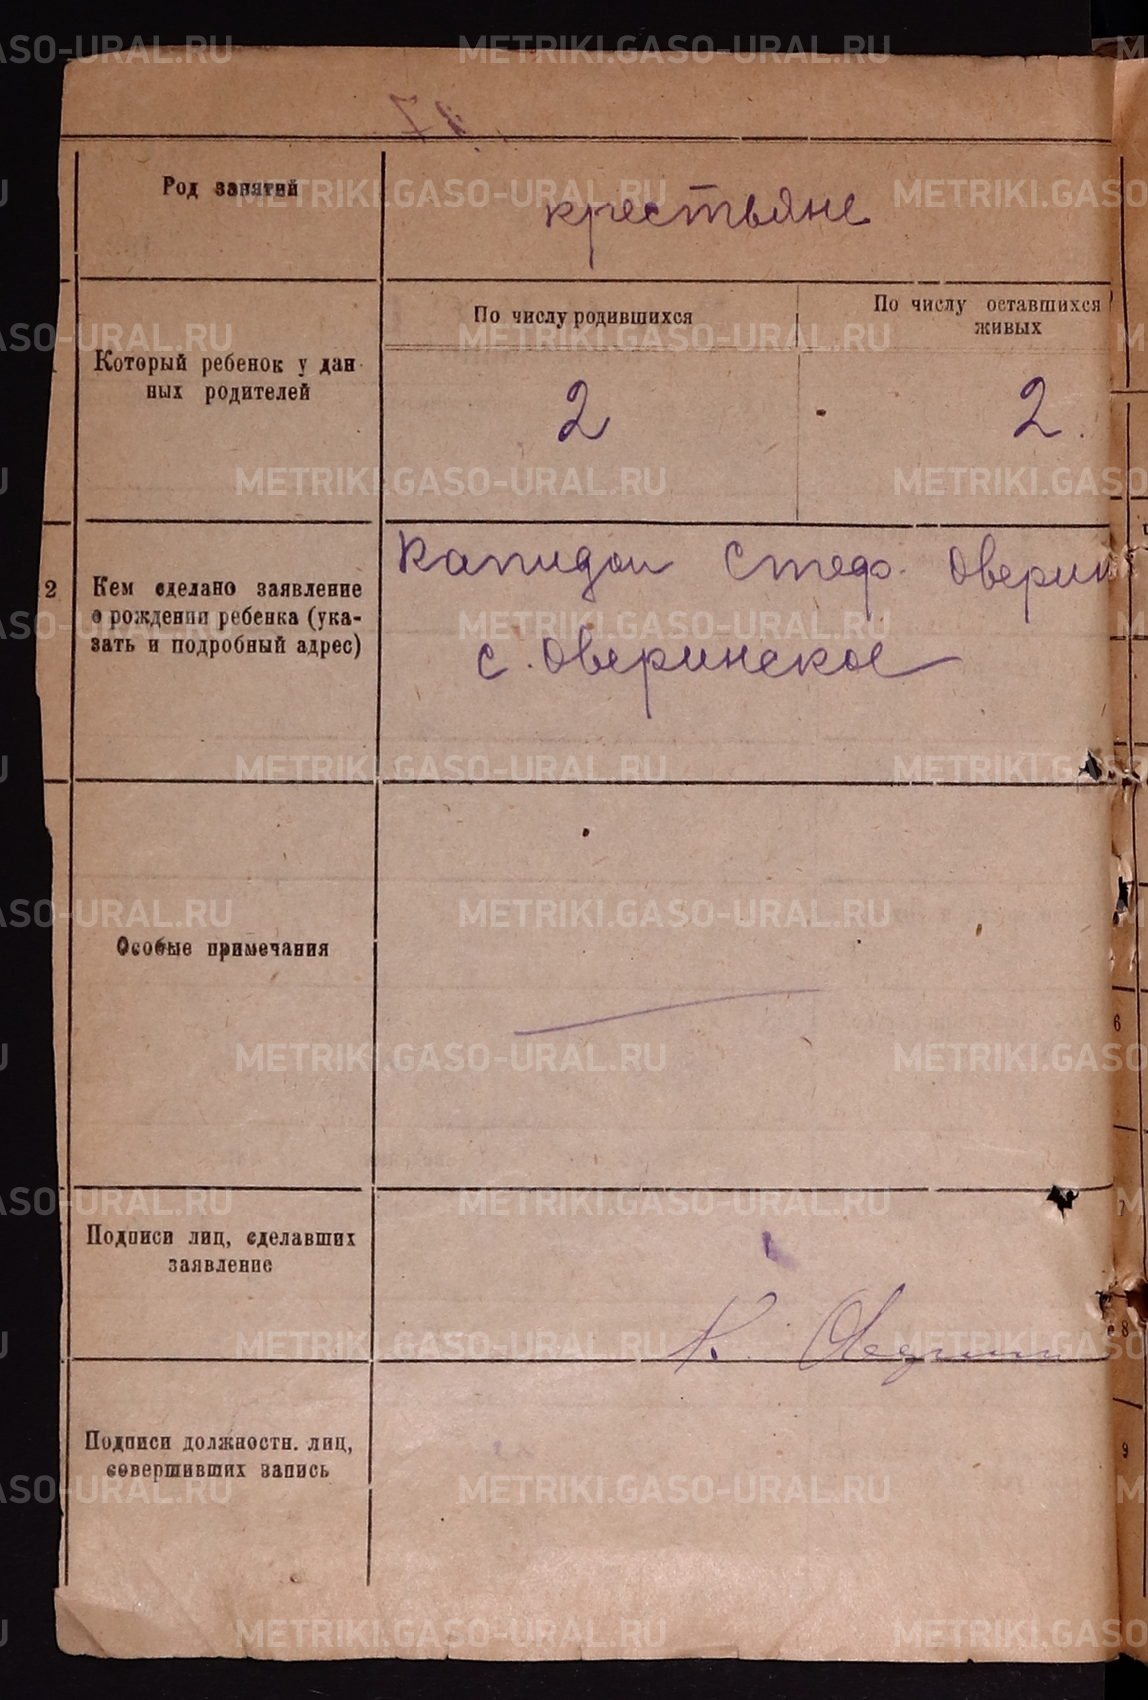 Род занятий
крестьяне
Который ребенок у дан
ных родителей
По числу родившихся
По числу оставшихся
живых
2
2.
2
Кем сделано заявление
о рождении ребенка (ука-
зать и подробный адрес)
Стеф. Оверин
с. Оверинское
Особые примечания
Подписи лиц, сделавших
заявление
К. Оверин
Подписи должностн. лиц,
совершивших запись
6
7
8
9
METRIKI.GASO-URAL.RU